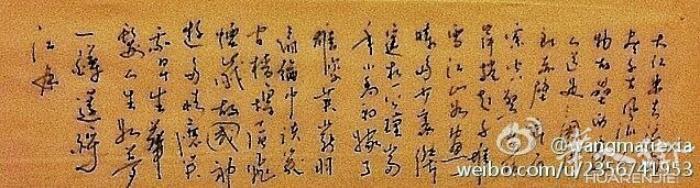 大江東去浪
千古風流
物故壘西
人道是三國周
郎赤壁
岸捲起千堆
雪江山如畫
時多少豪傑
遙想公瑾當
年小喬初嫁了
雄姿英發羽
扇綸巾談笑
檣櫓灰飛
煙滅故國神
遊多情應笑
我早生華
髮人生如夢
一樽還酹
江月
@wangmanexia
weibo.com/u/2356741953
HUARENJIE